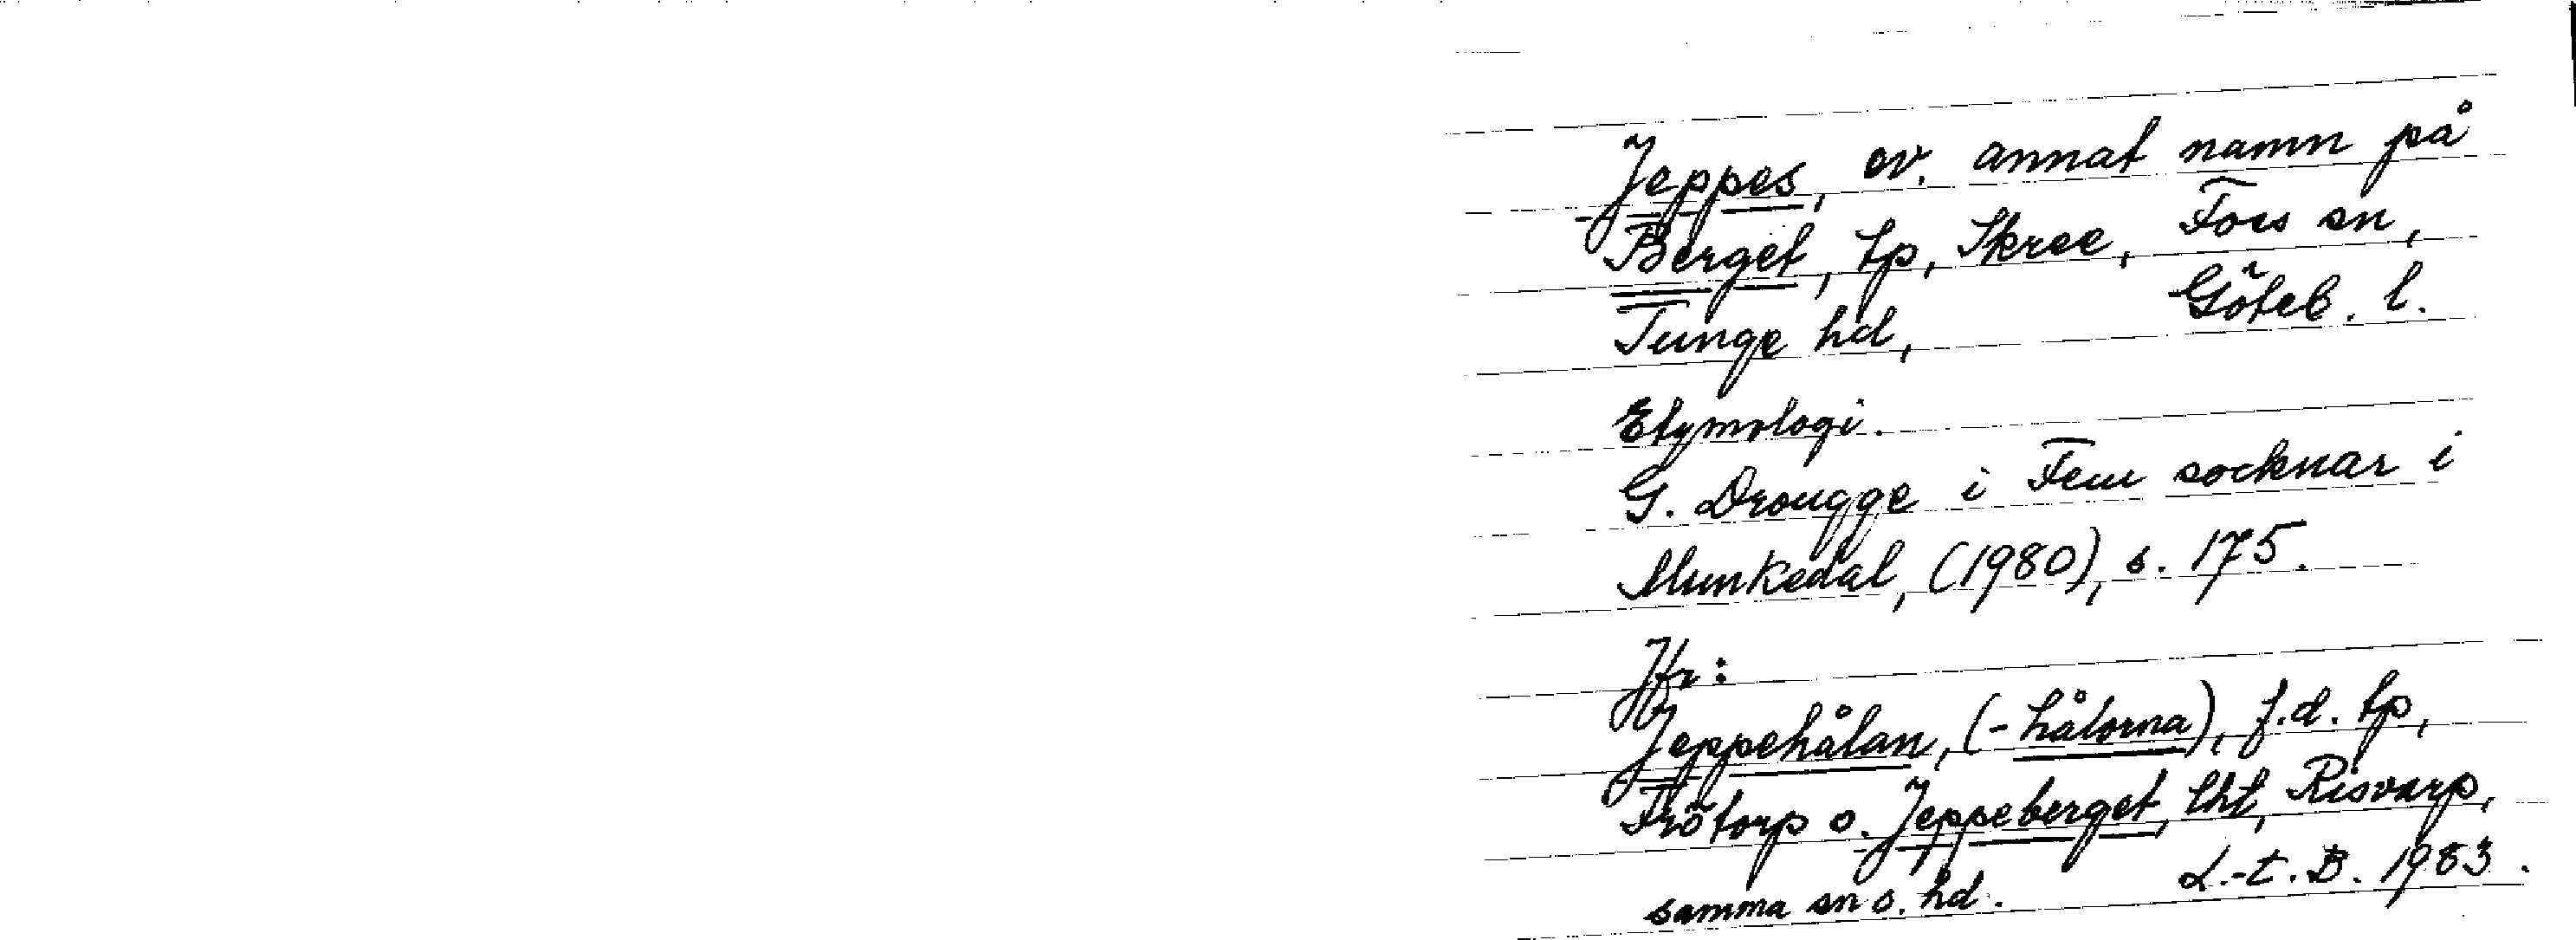 Jeppes, ev. annat namn på
Berget, tp, Skree, Foss sn,
Tunge hd, Göteb. l.
Etymologi.
G. Drougge i Fem socknar i
Munkedal, (1980), s. 175.
Jfr:
Jeppehålan, (-hålorna), f.d. tp,
Frötorp o. Jeppeberget, lht, Risvarp,
samma sn o. hd. L.-E. B. 1983.